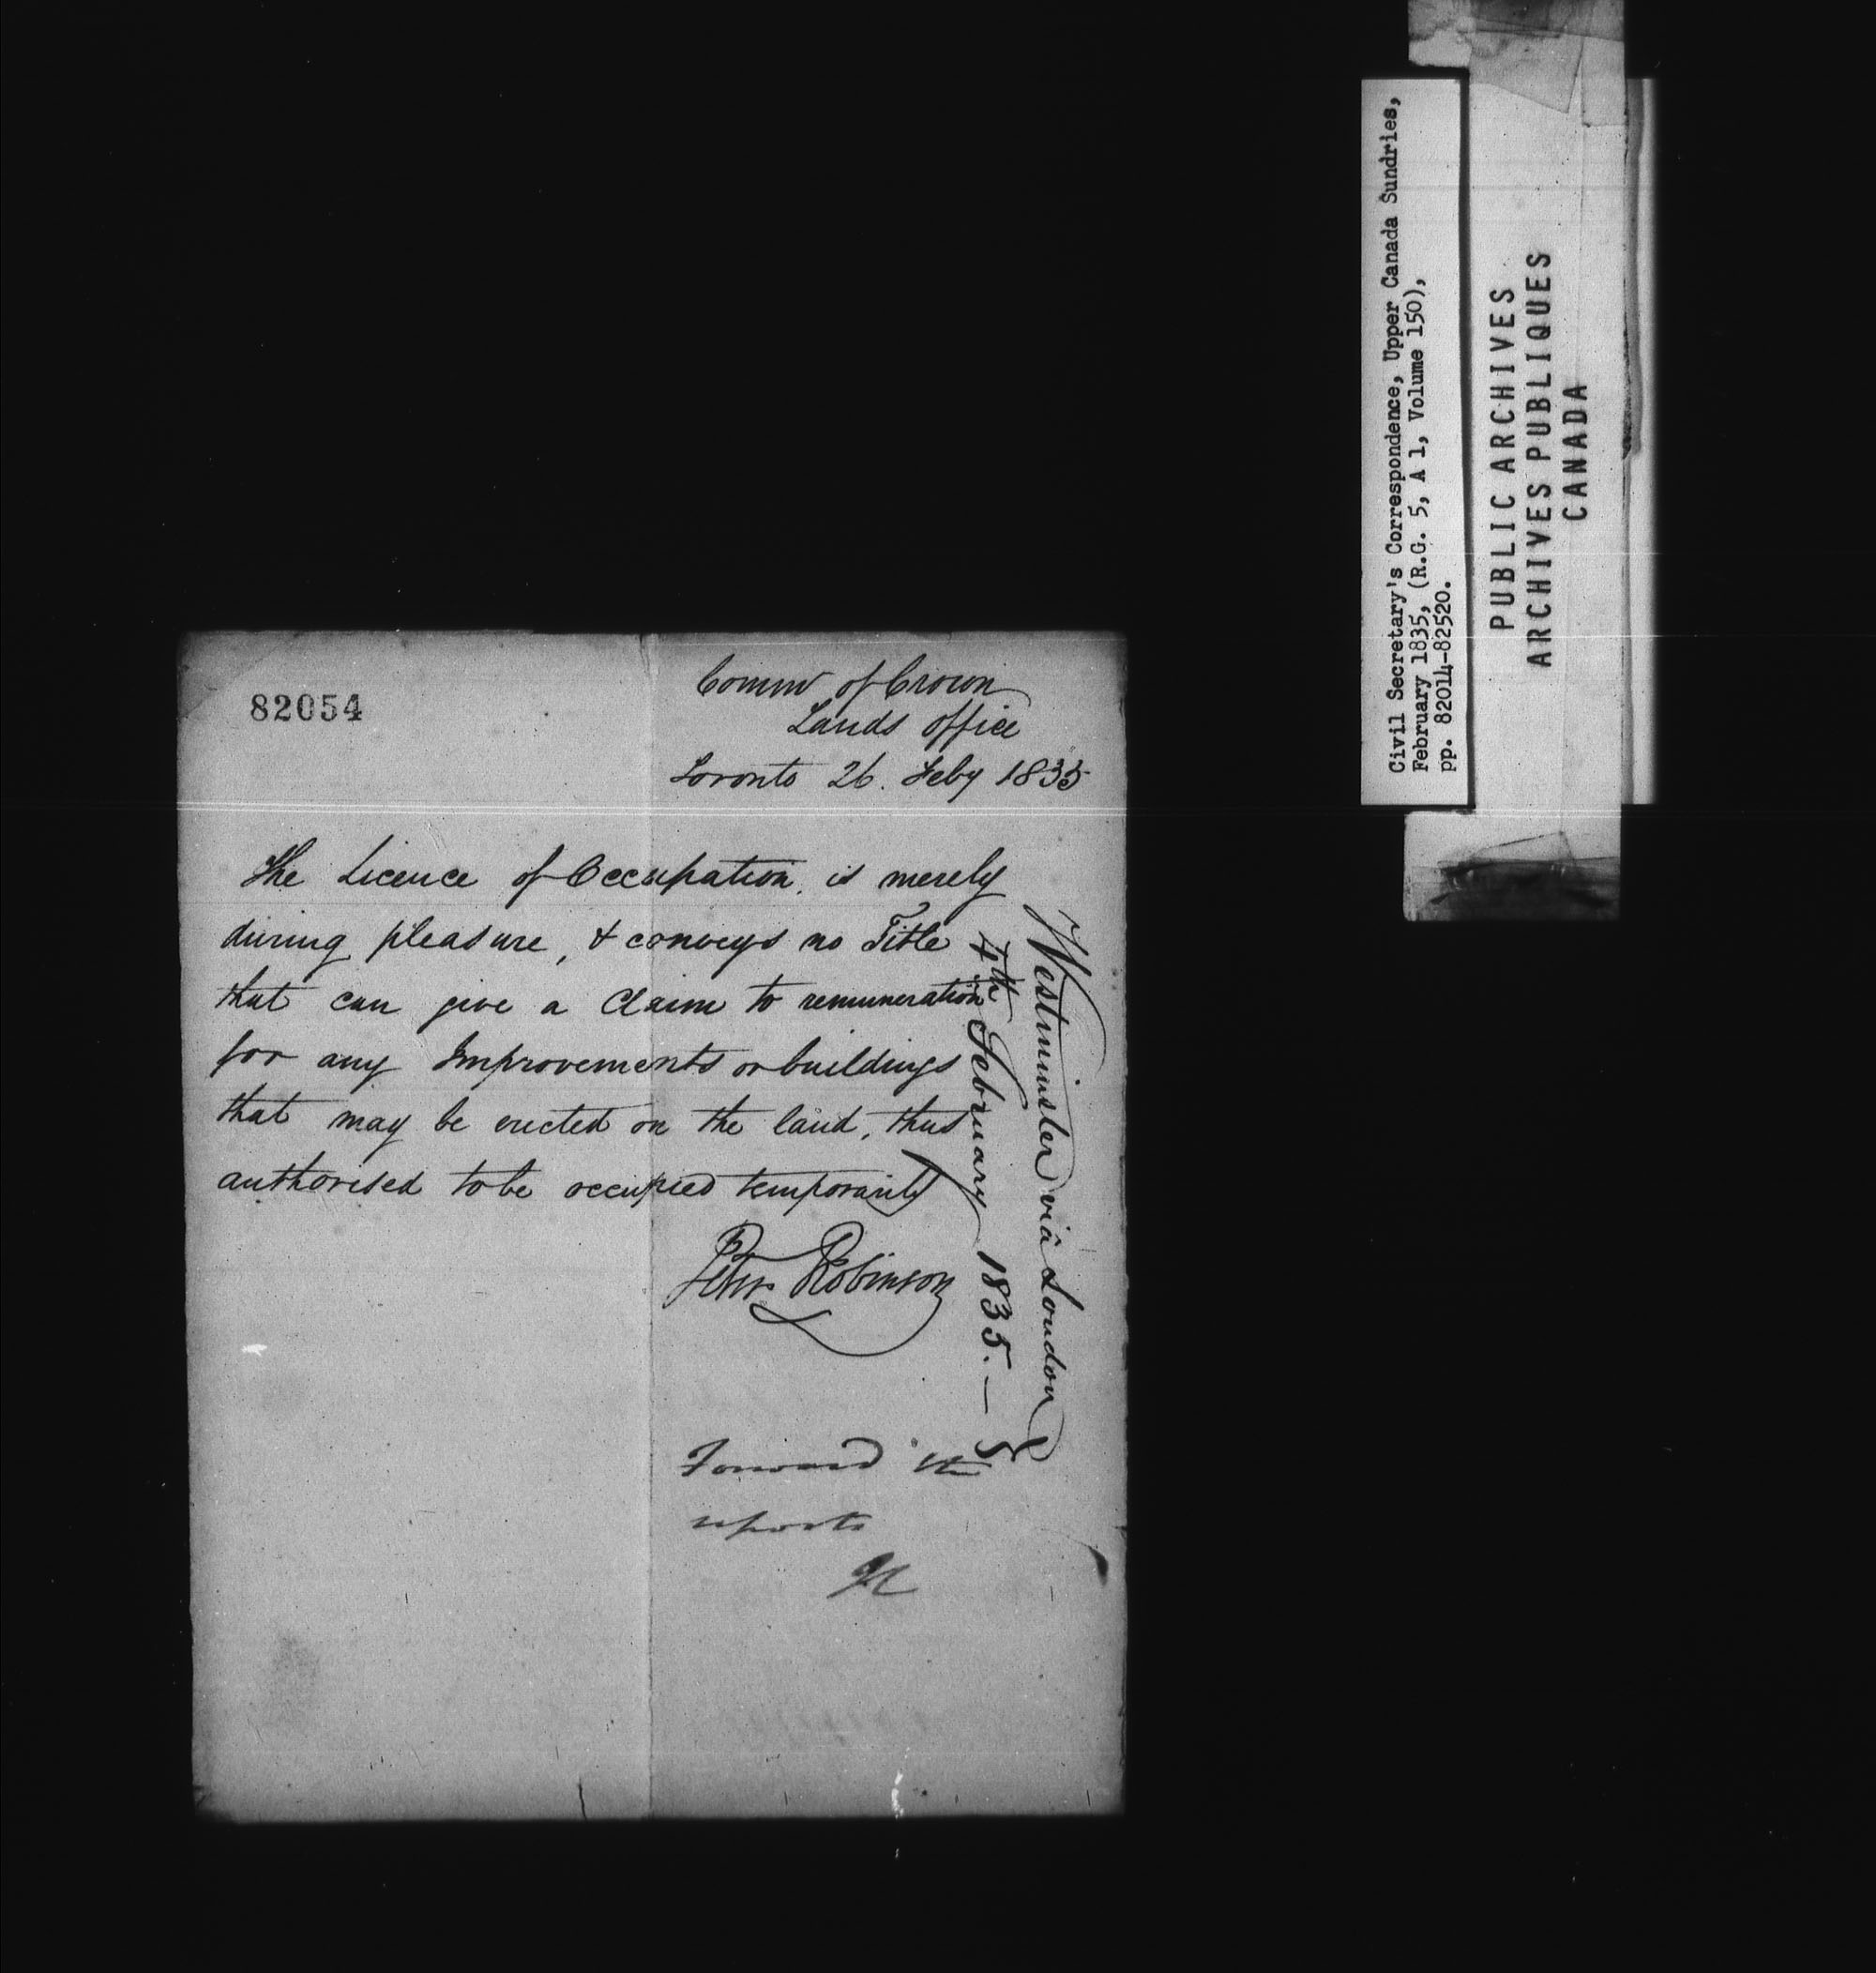 82054
Commr of Crown
Lands office
Toronto 26. Feby 1835
The Licence of Occupation is merely
during pleasure, & conveys no Title
that can give a Claim to remuneration
for any Improvements or buildings
that may be erected on the land, thus
authorised to be occupied temporarily
Peter Robinson
Forward the
reports
Westminster viâ London
4th February 1835.—
Civil Secretary's Correspondence, Upper Canada Sundries,
February 1835, (R.G. 5, A 1, Volume 150),
pp. 82014-82520.
PUBLIC ARCHIVES
ARCHIVES PUBLIQUES
CANADA